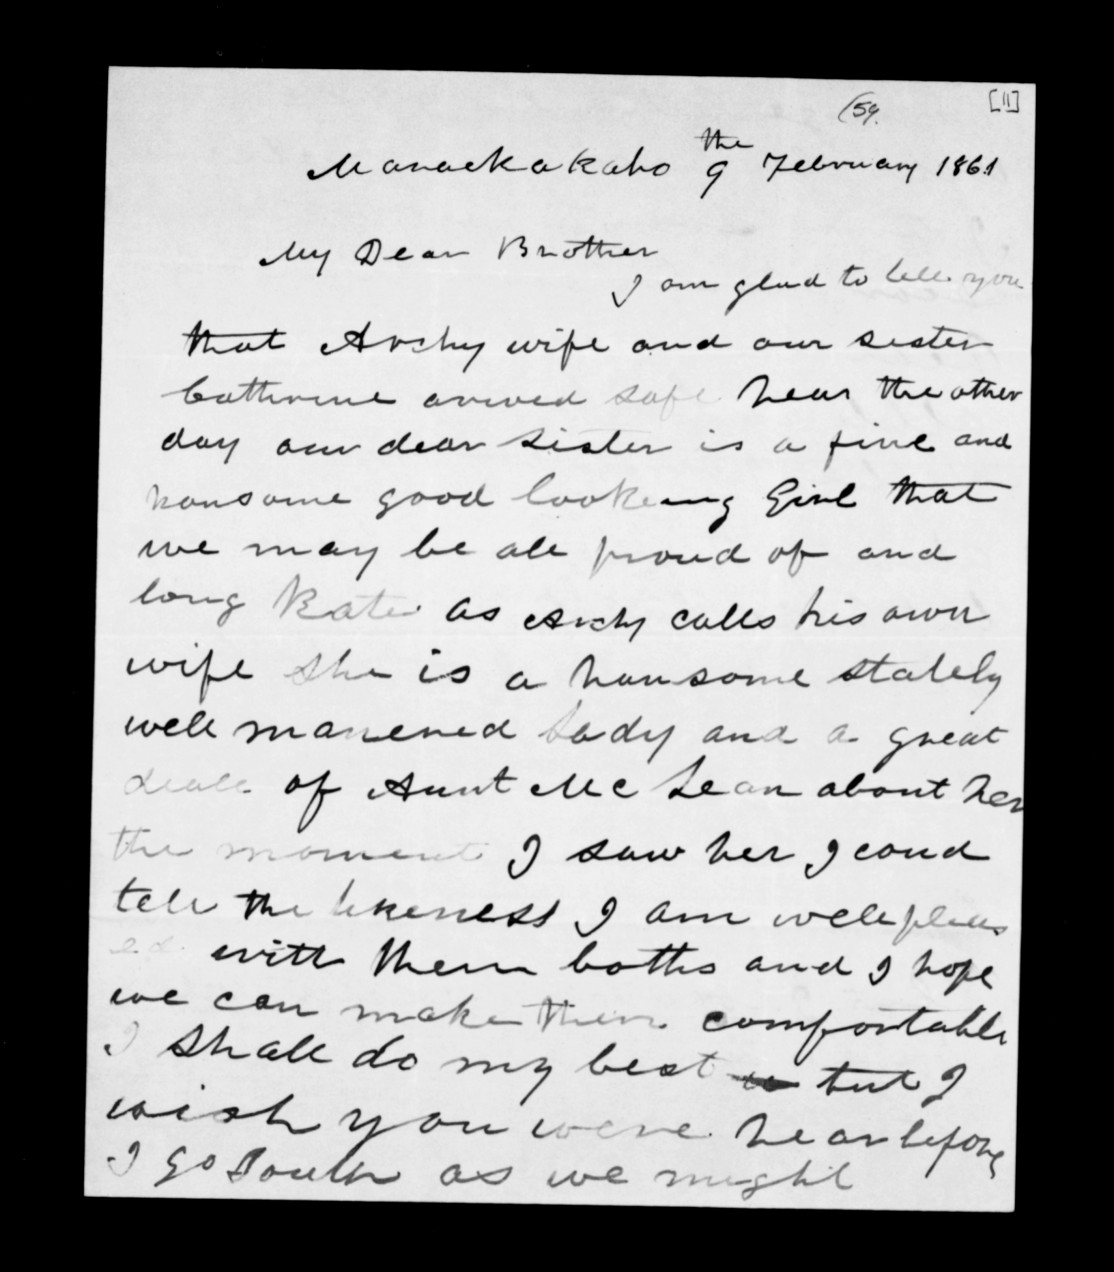 (59.
[11]
Maraekakaho the 9 February 1861
My Dear Brother
I am glad to tell you
that Archy wife and our sister
Catthrine arived safe hear the other
day our dear sister is a fine and
hansome good lookeing Girl that
we may be all proud of and
long Kate as Archy calls his own
wife she is a hansome stately
well manered Lady and a great
deall of Aunt Mc Lean about her
the moment I saw her I coud
tell the likeness I am well pleas
ed with them boths and I hope
we can make them comfortable
I shall do my best but I
wish you were hear before
I go South as we might